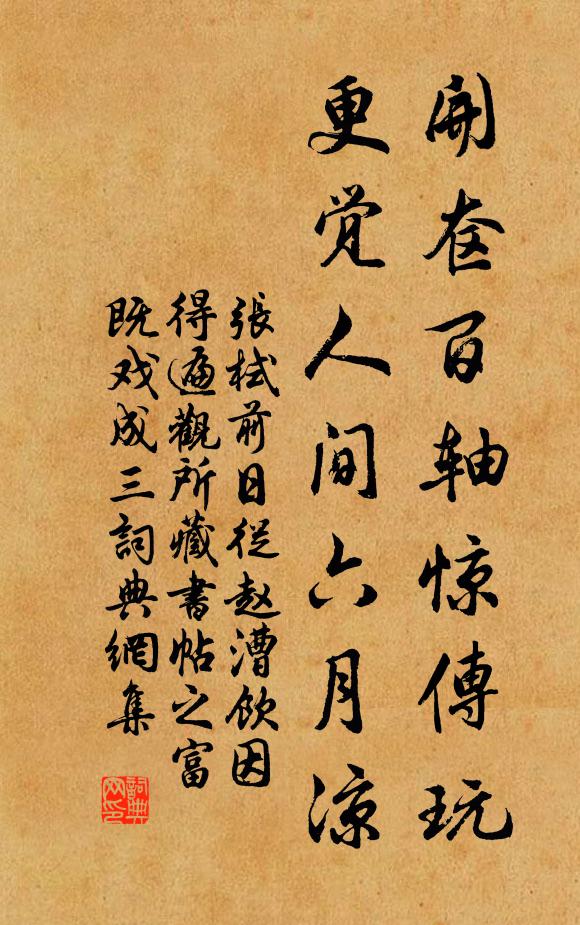 開奁百轴惊傳玩
更觉人间六月凉
張栻前日從赵漕飲因
得遍觀所藏書帖之富
既戏成三詞典網集
詞典网印